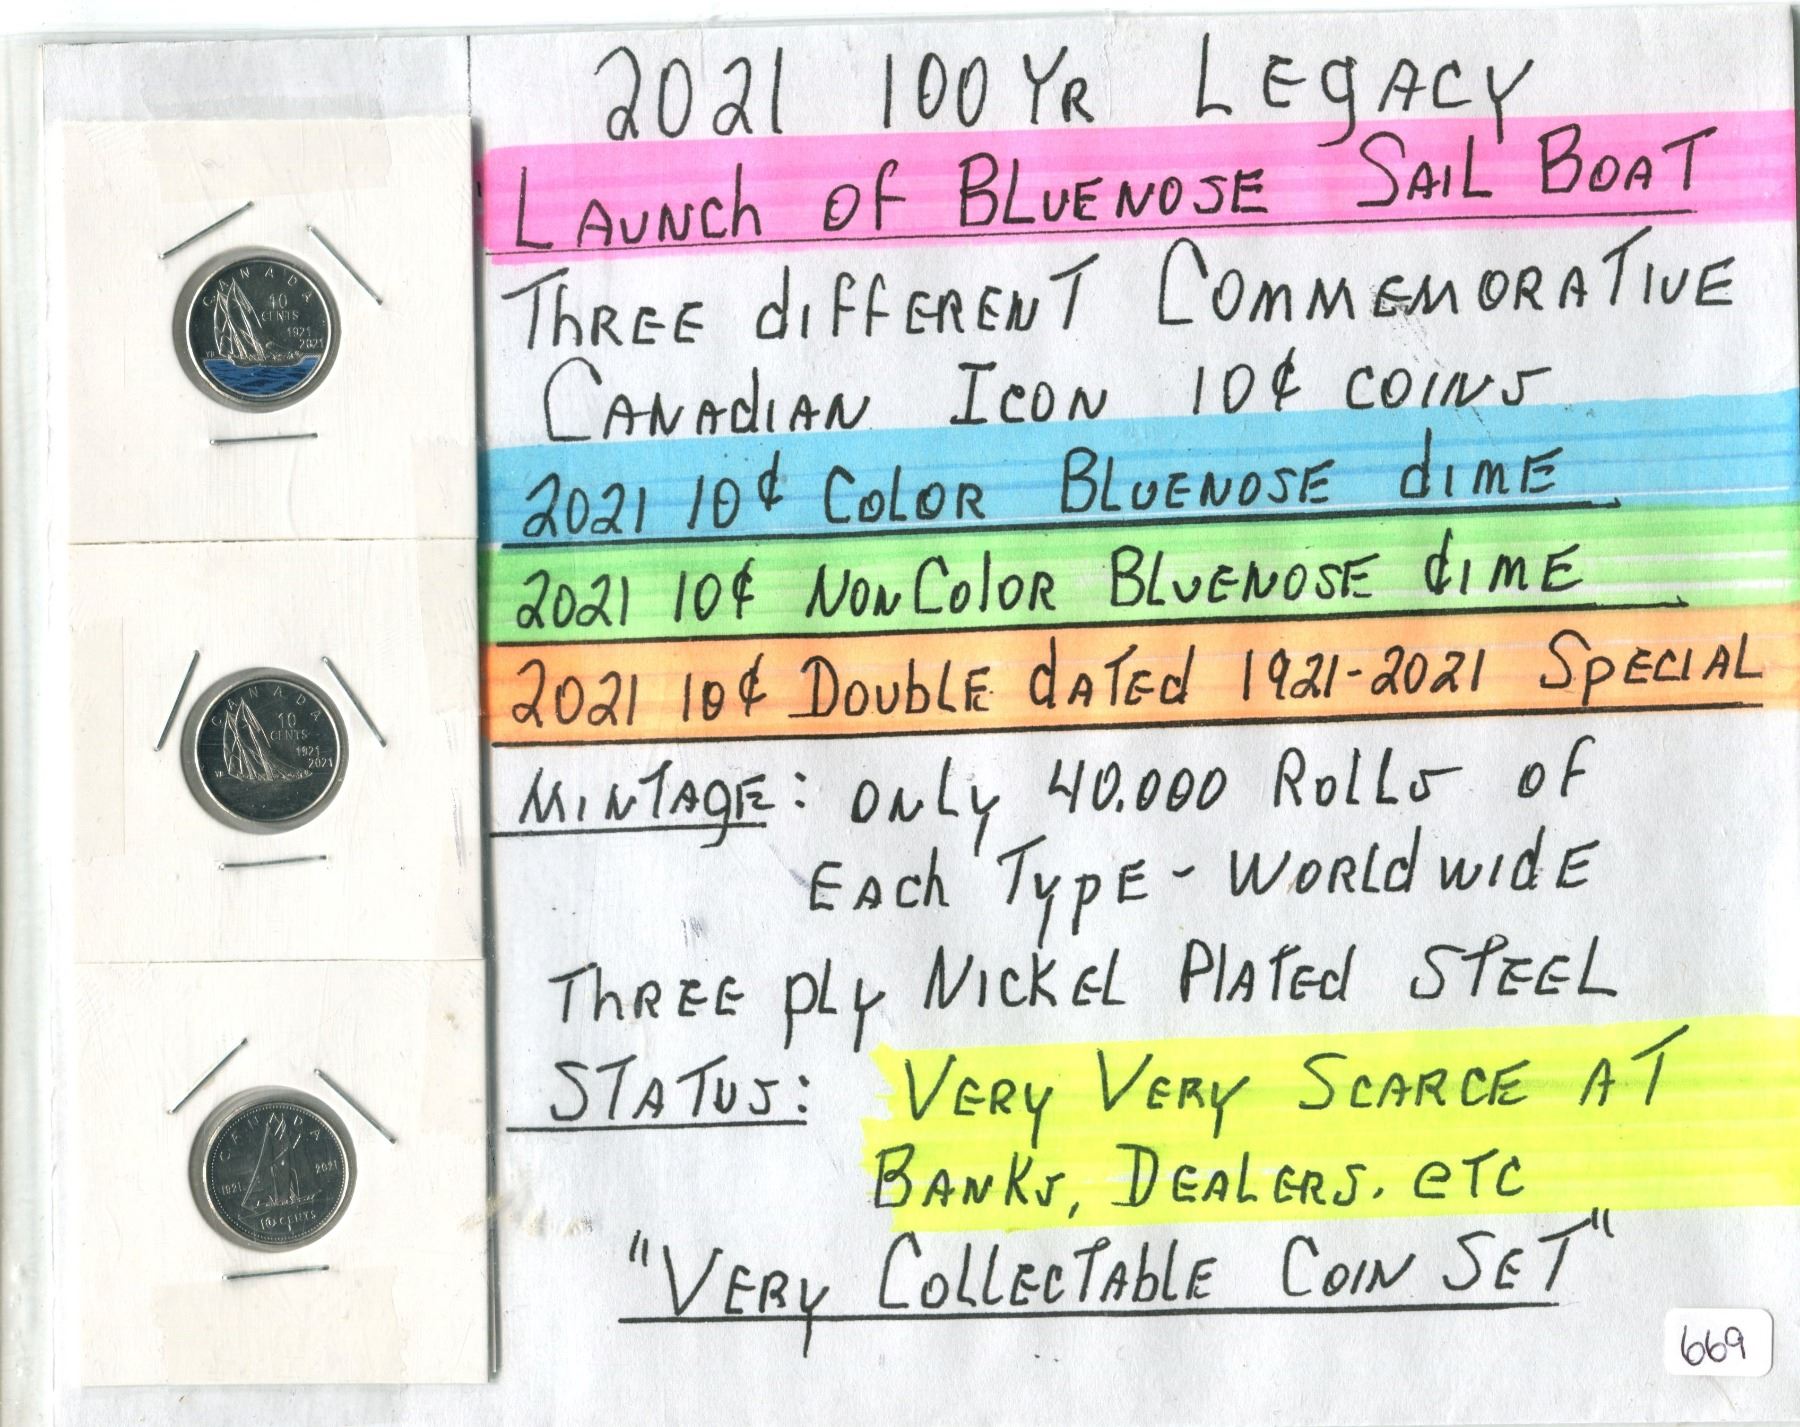 2021 100 YR LEGACY
LAUNCH OF BLUENOSE SAIL BOAT
THREE dIFFERENT COMMEMORATIVE
CANADIAN ICON 10¢ COINS
2021 10¢ COLOR BLUENOSE dIME
2021 10¢ NONCOLOR BLUENOSE dIME
2021 10¢ DOUBLE dATEd 1921-2021 SPECIAL
MINTAGE: ONLY 40.000 ROLLS OF
EACH TYPE - WORLDWIDE
THREE PLY NICKEL PLATED STEEL
STATUS: VERY VERY SCARCE AT
BANKS, DEALERS. eTC
"VERY COLLECTABLE COIN SET"
669
CANADA
10
CENTS
1921
2021
CANADA
10
CENTS
1921
2021
CANADA
1921
2021
10 CENTS